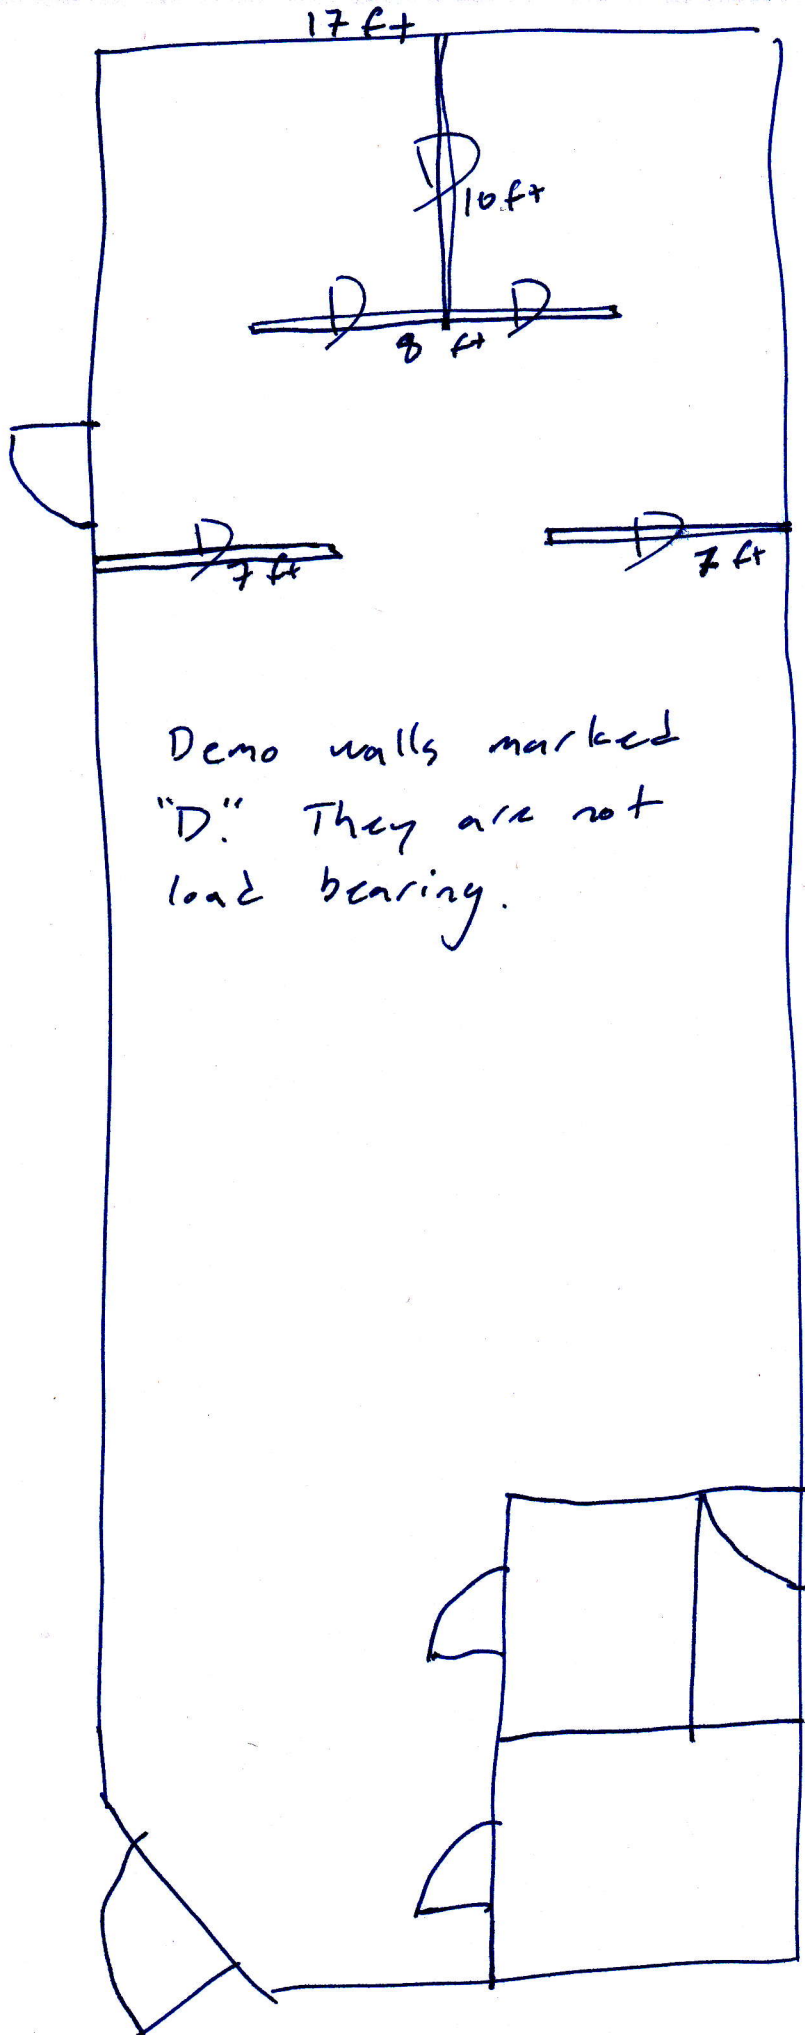 17 ft
D
10 ft
D
D
8 ft
D
7 ft
D
7 ft
Demo walls marked
"D." They are not
load bearing.